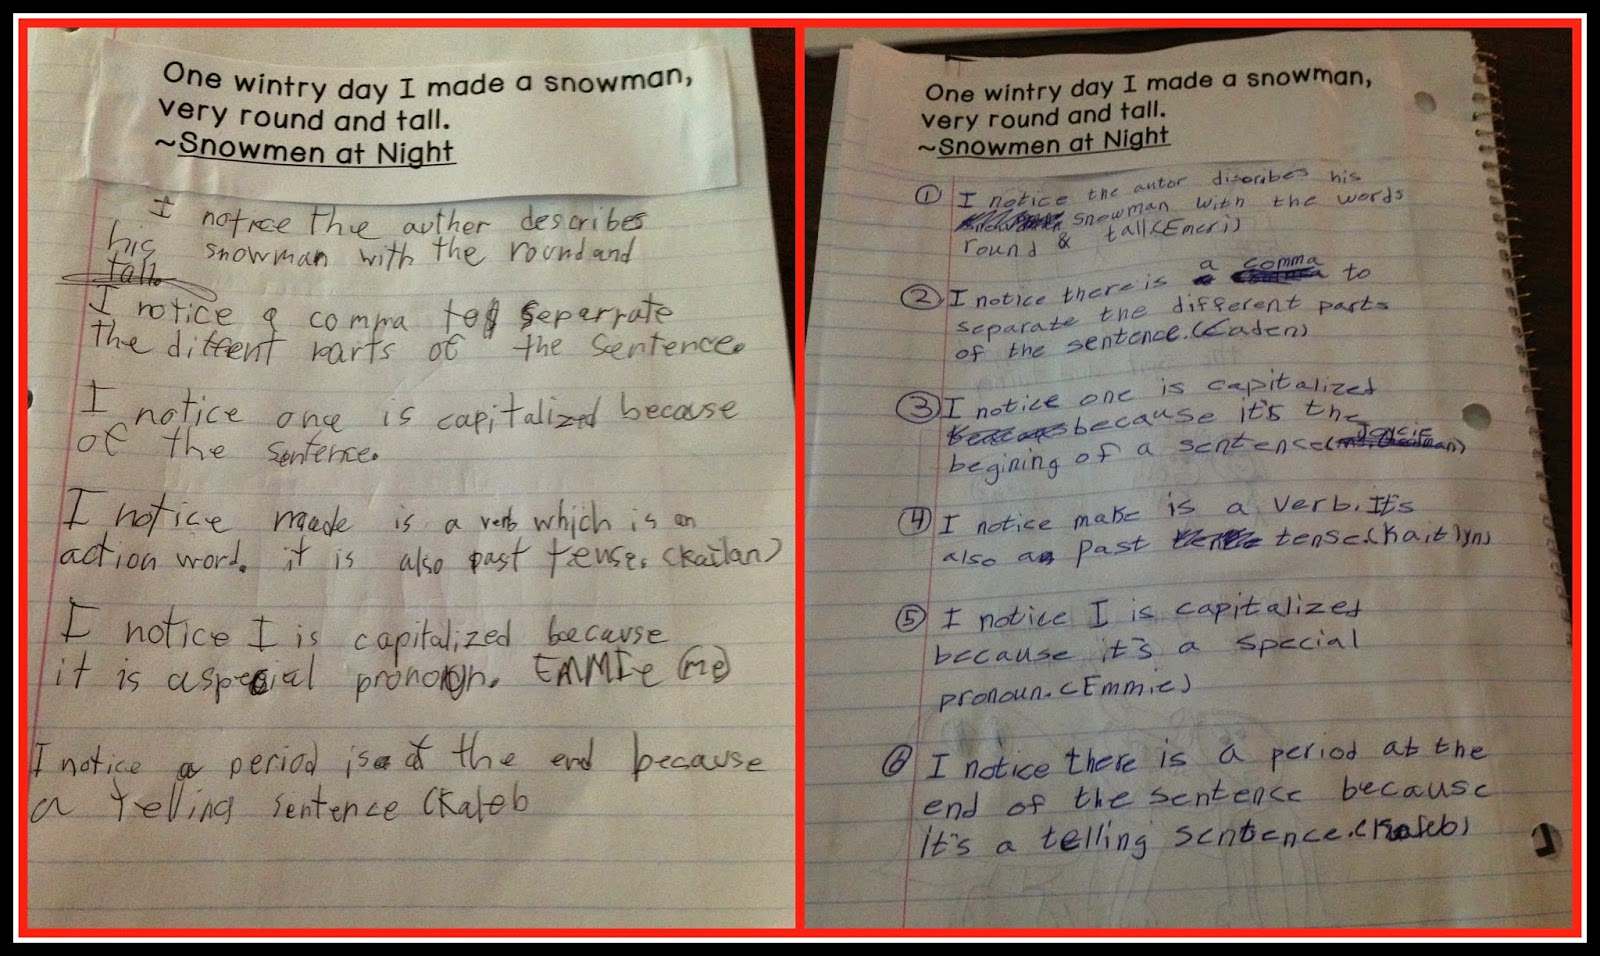 One wintry day I made a snowman,
very round and tall.
~Snowmen at Night
I notice the auther describes
his snowman with the round and
tall.
I notice a comma to seperrate
the diffrent parts of the sentence.
I notice one is capitalized because
of the sentence.
I notice made is a verb which is an
action word. it is also past tense. (Kaitlan)
I notice I is capitalized because
it is a special pronoun. EMMIe (me)
I notice a period is at the end because
a telling sentence (Kaleb
One wintry day I made a snowman,
very round and tall.
~Snowmen at Night
① I notice the autor discribes his
snowman with the words
round & tall (Emeri)
② I notice there is a comma to
separate the different parts
of the sentence. (Caden)
③ I notice one is capitalized
because it's the
begining of a sentense (Joycie)
④ I notice make is a verb. It's
also a past tense. (Kaitlyn)
⑤ I notice I is capitalized
because it's a special
pronoun. (Emmie)
⑥ I notice there is a period at the
end of the sentence because
It's a telling sentence. (Kaleb)